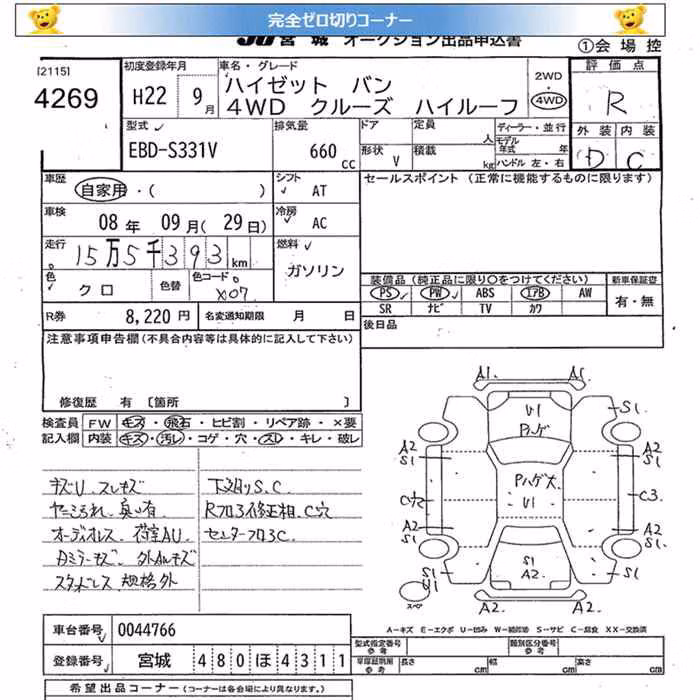 完全ゼロ切りコーナー
JU 宮城 オークション出品申込書
①会場控
[2115]
4269
初度登録年月
H22 9月
車名・グレード
ハイゼット バン
4WD クルーズ ハイルーフ
2WD
・
4WD
評価点
R
外装 内装
D C
型式
EBD-S331V
排気量
660 cc
ドア
形状 V
定員 人
積載 kg
ディーラー・並行
モデル年式 年
ハンドル 左・右
車歴
自家用・( )
シフト
AT
セールスポイント (正常に機能するものに限ります)
車検
08年 09月(29日)
冷房
AC
走行
15万5千393km
燃料
ガソリン
色
クロ
色替
色コード
X07
装備品(純正品に限り○をつけてください)
新車保証書
PS PW ABS エアB AW
有・無
SR ナビ TV カワ
R券 8,220円
名変通知期限 月 日
後日品
注意事項申告欄(不具合内容等は具体的に記入して下さい)
修復歴 有 〔箇所
検査員記入欄
FW キズ・飛石・ヒビ割・リペア跡・×要
内装 キズ・汚れ・コゲ・穴・スレ・キレ・破レ
キズU. スレキズ
下廻りS.C
オーディオレス. 荷室AU
センターフロアC
スタッドレス 規格外
A1. A1.
U1
Pハゲ
S1
A2 S1
A2 S1
Pハゲ大
U1
C穴
C3
A2
A2 S1
S1 A2
S1 U1
S1
スペア
A2 A2
A-キズ E-エクボ U-凹み W-補修跡 S-サビ C-腐食 XX-交換済
車台番号 0044766
型式指定番号 参考
類別区分番号 参考
登録番号 宮城 480 ほ 4311
車庫証明用 参考
長さ cm
幅 cm
高さ cm
希望出品コーナー (コーナーは各会場により異なります。)